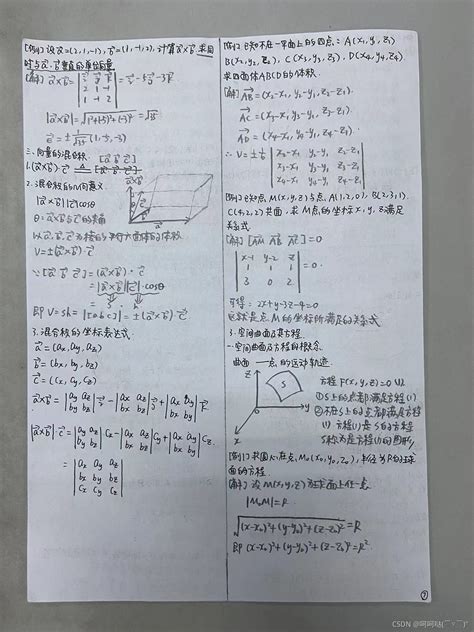 [例1] 设a⃗=(2,1,-1), b⃗=(1,-1,2), 计算a⃗×b⃗, 并且
时与a⃗、b⃗垂直的单位向量
[解] a⃗×b⃗ = | i⃗ j⃗ k⃗ ; 2 1 -1 ; 1 -1 2 | = i⃗-5j⃗-3k⃗
|a⃗×b⃗| = √(1²+(-5)²+(-3)²) = √35
e⃗ = ± 1/√35 (1,-5,-3)
三. 向量的混合积 [a⃗ b⃗ c⃗]
1. (a⃗×b⃗)·c⃗ [a⃗ b⃗ c⃗]
2. 混合积的几何意义
|a⃗×b⃗||c⃗|cosθ
θ: a⃗×b⃗与c⃗的夹角
以a⃗、b⃗、c⃗为棱的平行六面体的体积
V=±(a⃗×b⃗)·c⃗
∵[a⃗ b⃗ c⃗] = (a⃗×b⃗)·c⃗
= |a⃗×b⃗||c⃗|cosθ
S h
即 V=Sh= |[a b c]| = ±(a⃗×b⃗)·c⃗
3. 混合积的坐标表达式
a⃗=(ax, ay, az)
b⃗=(bx, by, bz)
c⃗=(cx, cy, cz)
a⃗×b⃗ = | ay az ; by bz | i⃗ - | ax az ; bx bz | j⃗ + | ax ay ; bx by | k⃗
(a⃗×b⃗)·c⃗ = | ay az ; by bz | cx - | ax az ; bx bz | cy + | ax ay ; bx by | cz
= | ax ay az ; bx by bz ; cx cy cz |
[例] 已知不在一平面上的四点: A(x₁,y₁,z₁)
B(x₂,y₂,z₂), C(x₃,y₃,z₃), D(x₄,y₄,z₄)
求四面体ABCD的体积.
[解] AB=(x₂-x₁, y₂-y₁, z₂-z₁)
AC=(x₃-x₁, y₃-y₁, z₃-z₁)
AD=(x₄-x₁, y₄-y₁, z₄-z₁)
∴V=±1/6 | x₂-x₁ y₂-y₁ z₂-z₁ ; x₃-x₁ y₃-y₁ z₃-z₁ ; x₄-x₁ y₄-y₁ z₄-z₁ |
[例] 已知点M(x,y,z)与点A(1,2,0), B(2,3,1)
C(4,2,2)共面, 求M点的坐标x,y,z满足
关系式
[解] [AM AB AC]=0
| x-1 y-2 z ; 1 1 1 ; 3 0 2 | =0
可得: 2x+y-3z-4=0
这就是点M的坐标所满足的关系式
3. 空间曲面及其方程
一. 空间曲面及方程的概念
曲面 一点的运动轨迹
z S y x
方程 F(x,y,z)=0 (1)
①S上的点都满足方程(1)
②不在S上的点都不满足方程
(1) 方程(1)是S的方程
S称为是方程(1)的图形
[例] 求圆心在点M₀(x₀,y₀,z₀), 半径为R的球
面的方程
[解] 设M(x,y,z)为球面上任一点
|M₀M|=R
√((x-x₀)²+(y-y₀)²+(z-z₀)²)=R
即 (x-x₀)²+(y-y₀)²+(z-z₀)²=R²
CSDN